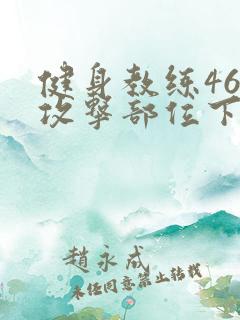 健身教练46
攻擊部位下
趙永成
未经同意禁止转载